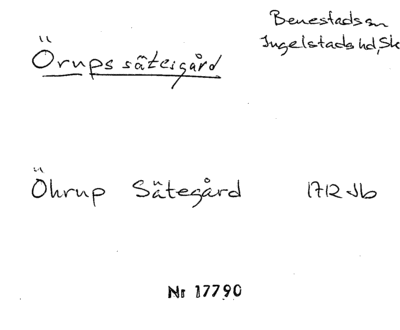 Benestads sn
Ingelstads hd, Sk
Örups säteigård
Öhrup Sätegård 1712 Jb
Nr 17790